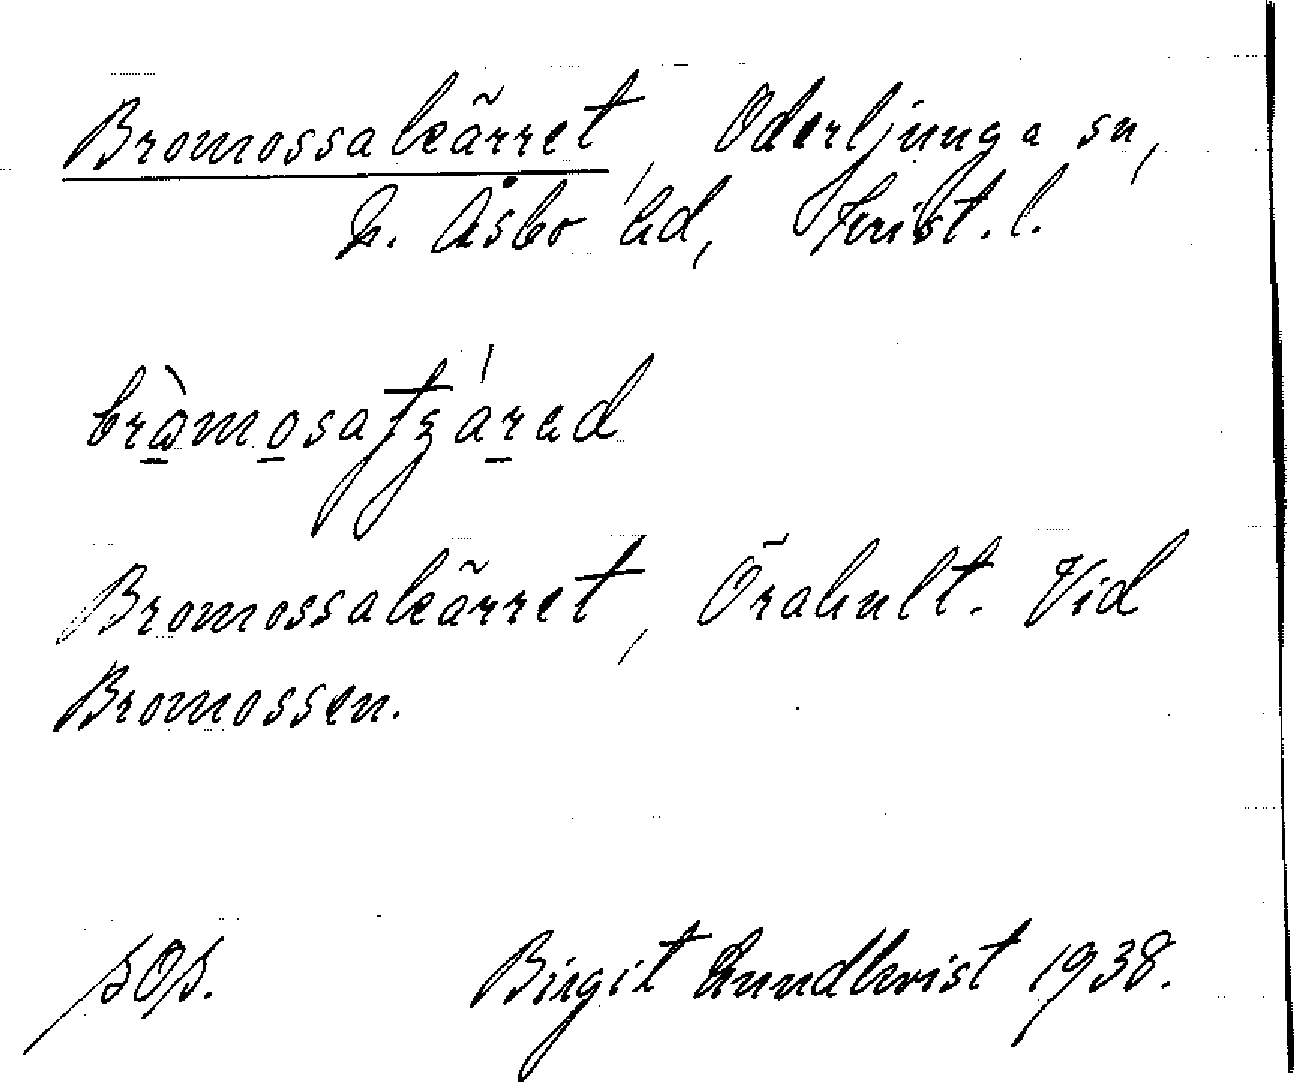 Bromossakärret, Oderljunga sn,
N. Åsbo hd, Krist. l.
Bromossakärret, Örahult. Vid
Bromossen.
Birgit Lundkvist 1938.